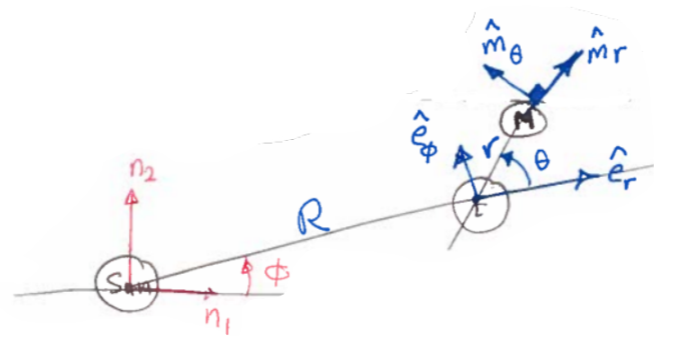 m̂θ
m̂r
M
êϕ
r
θ
êr
n2
R
E
Sun
ϕ
n1